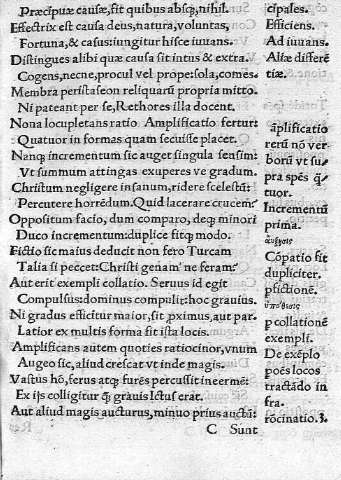 Præcipuæ causæ, sit quibus absq;, nihil.
Effectrix est causa deus, natura, voluntas,
Fortuna, & casus: iungitur hisce iuuans.
Distingues alibi quæ causa sit intus & extra.
Cogens, necne, procul vel prope: sola, comes.
Membra peristaseωn reliquarũ propria mitto.
Ni pateant per se, Rethores illa docent.
Nona locupletans ratio Amplificatio fertur:
Quatuor in formas quam secuisse placet.
Nanq; incrementum sic auget singula sensim:
Vt summum attingas exuperes ve gradum.
Christum negligere insanum, ridere scelestũ:
Percutere horrẽdum. Quid lacerare crucem?
Oppositum facio, dum comparo, deq; minori
Duco incrementum: duplice sitq; modo.
Fictio sic maius deducit non fero Turcam
Talia si peccet: Christi genam' ne feram?
Aut erit exempli collatio. Seruus id egit
Compulsus: dominus compulit: hoc grauius.
Ni gradus efficitur maior, fit ꝓximus, aut par.
Latior ex multis forma sit ista locis.
Amplificans autem quoties ratiocinor, vnum
Augeo sic, aliud crescat vt inde magis.
Vastus hõ, ferus atq; furẽs percussit inermẽ:
Ex ijs colligitur q̃ grauis ictus erat.
Aut aliud magis aucturus, minuo prius auctũ:
C Sunt
cipales.
Efficiens.
Ad iuuans.
Aliæ differẽ
tiæ.
ãplificatio
rerũ nõ ver
borũ vt su
pra spẽs q̃
tuor.
Incrementũ
prima.
αὔξησις
Cõpatio fit
dupliciter.
ꝑ fictionẽ.
ὑπόθεσις
ꝑ collationẽ
exempli.
De exẽplo
poẽs locos
tractãdo in
fra.
rõcinatio. 3.